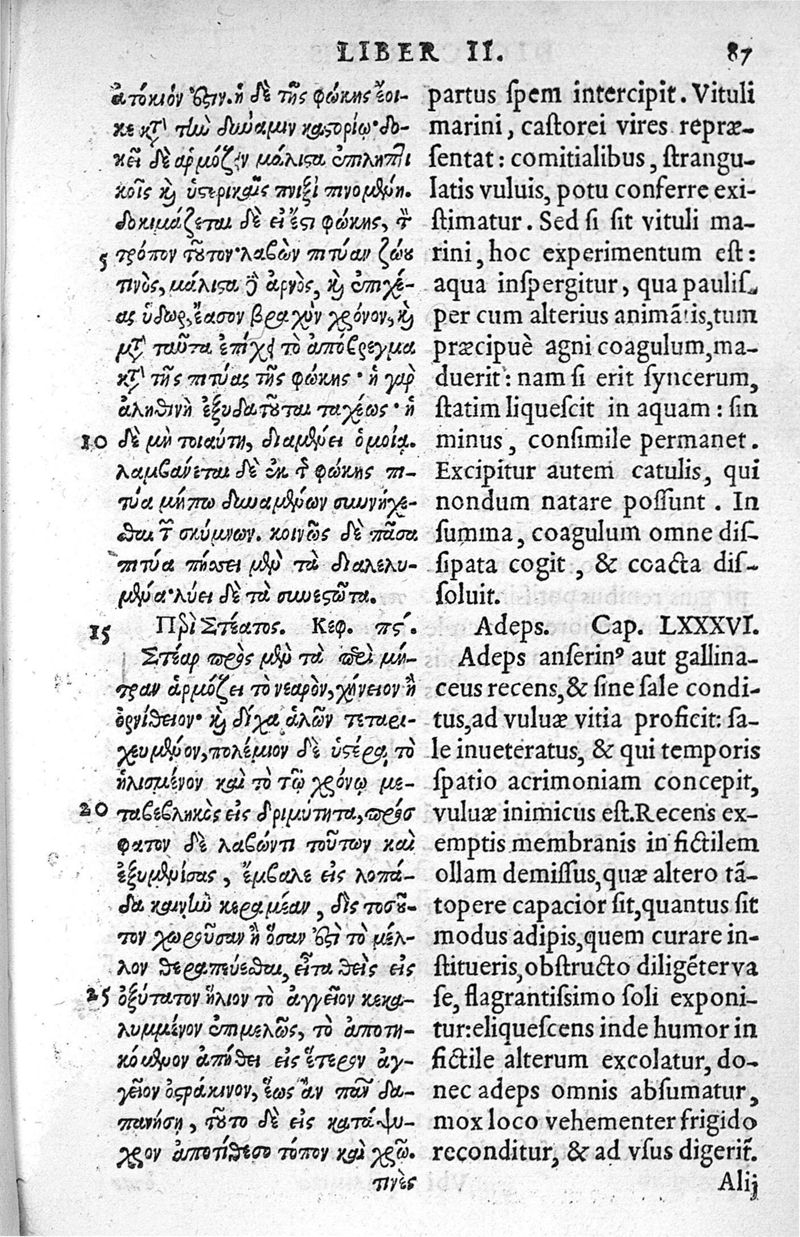 LIBER II. 87
ἀτόκιόν ἐστιν. ἡ δὲ τῆς φώκης ἔοι-
κε κατὰ τὴν δύναμιν καστορίῳ· δο-
κεῖ δὲ ἁρμόζειν μάλιστα ἐπιληπτι
κοῖς καὶ ὑστερικαῖς πνιξὶ πινομένη.
δοκιμάζεται δὲ εἰ ἔστι φώκης, τὸν
5 τρόπον τοῦτον· λαβὼν πιτύαν ζώου
τινὸς, μάλιστα δὲ ἀρνὸς, καὶ ἐπιχέ-
ας ὕδωρ, ἔασον βραχὺν χρόνον, καὶ
μετὰ ταῦτα ἐπίχει τὸ ἀπόβρεγμα
κατὰ τῆς πιτύας τῆς φώκης· ἡ γὰρ
ἀληθινὴ ἐξυδατοῦται ταχέως· ἡ
10 δὲ μὴ τοιαύτη, διαμένει ὁμοία.
λαμβάνεται δὲ ἐκ τῆς φώκης πι-
τύα μήπω δυναμένων συννήχε-
σθαι τῶν σκύμνων. κοινῶς δὲ πᾶσα
πιτύα πήσσει μὲν τὰ διαλελυ-
μένα· λύει δὲ τὰ συνεστῶτα.
15 Περὶ Στέατος. Κεφ. πϛ΄.
Στέαρ πρὸς μὲν τὰ περὶ μή-
τραν ἁρμόζει τὸ νεαρὸν, χήνειον ἢ
ὀρνίθειον· καὶ δίχα ἁλῶν τεταρι-
χευμένον, πολέμιον δὲ ὑστέρᾳ τὸ
ἡλισμένον καὶ τὸ τῷ χρόνῳ με-
20 ταβεβληκὸς εἰς δριμύτητα, πρόσ
φατον δὲ λαβών τι τούτων καὶ
ἐξυμενίσας, ἔμβαλε εἰς λοπά-
δα καινὴν κεραμέαν, δὶς τοσοῦ-
τον χωροῦσαν ἢ ὅσον ἐστὶ τὸ μέλ-
λον θεραπεύεσθαι, εἶτα θεὶς εἰς
25 ὀξύτατον ἥλιον τὸ ἀγγεῖον κεκα-
λυμμένον ἐπιμελῶς, τὸ ἀποτη-
κόμενον ἀπήθει εἰς ἕτερον ἀγ-
γεῖον ὀστράκινον, ἕως ἂν πᾶν δα-
πανήσῃ, τοῦτο δὲ εἰς κατάψυ-
χρον ἀποτίθεσο τόπον καὶ χρῶ.
τινὲς
partus ſpem intercipit. Vituli
marini, caſtorei vires repræ-
ſentat: comitialibus, ſtrangu-
latis vuluis, potu conferre exi-
ſtimatur. Sed ſi ſit vituli ma-
rini, hoc experimentum eſt:
aqua inſpergitur, qua pauliſ-
per cum alterius animãtis, tum
præcipuè agni coagulum, ma-
duerit: nam ſi erit ſyncerum,
ſtatim liqueſcit in aquam: ſin
minus, conſimile permanet.
Excipitur autem catulis, qui
nondum natare poſſunt. In
ſumma, coagulum omne diſ-
ſipata cogit, & coacta diſ-
ſoluit.
Adeps. Cap. LXXXVI.
Adeps anſerinꝰ aut gallina-
ceus recens, & ſine ſale condi-
tus, ad vuluæ vitia proficit: ſa-
le inueteratus, & qui temporis
ſpatio acrimoniam concepit,
vuluæ inimicus eſt. Recens ex-
emptis membranis in fictilem
ollam demiſſus, quæ altero tã-
topere capacior ſit, quantus ſit
modus adipis, quem curare in-
ſtitueris, obſtructo diligẽter va
ſe, flagrantiſſimo ſoli exponi-
tur: eliqueſcens inde humor in
fictile alterum excolatur, do-
nec adeps omnis abſumatur,
mox loco vehementer frigido
reconditur, & ad vſus digerit̃.
Alij